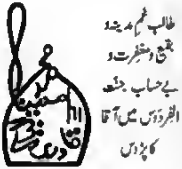 طالبِ غمِ مدینہ و
بقیع و مغفرت و
بے حساب جنت
الفردوس میں آقا
کا پڑوس